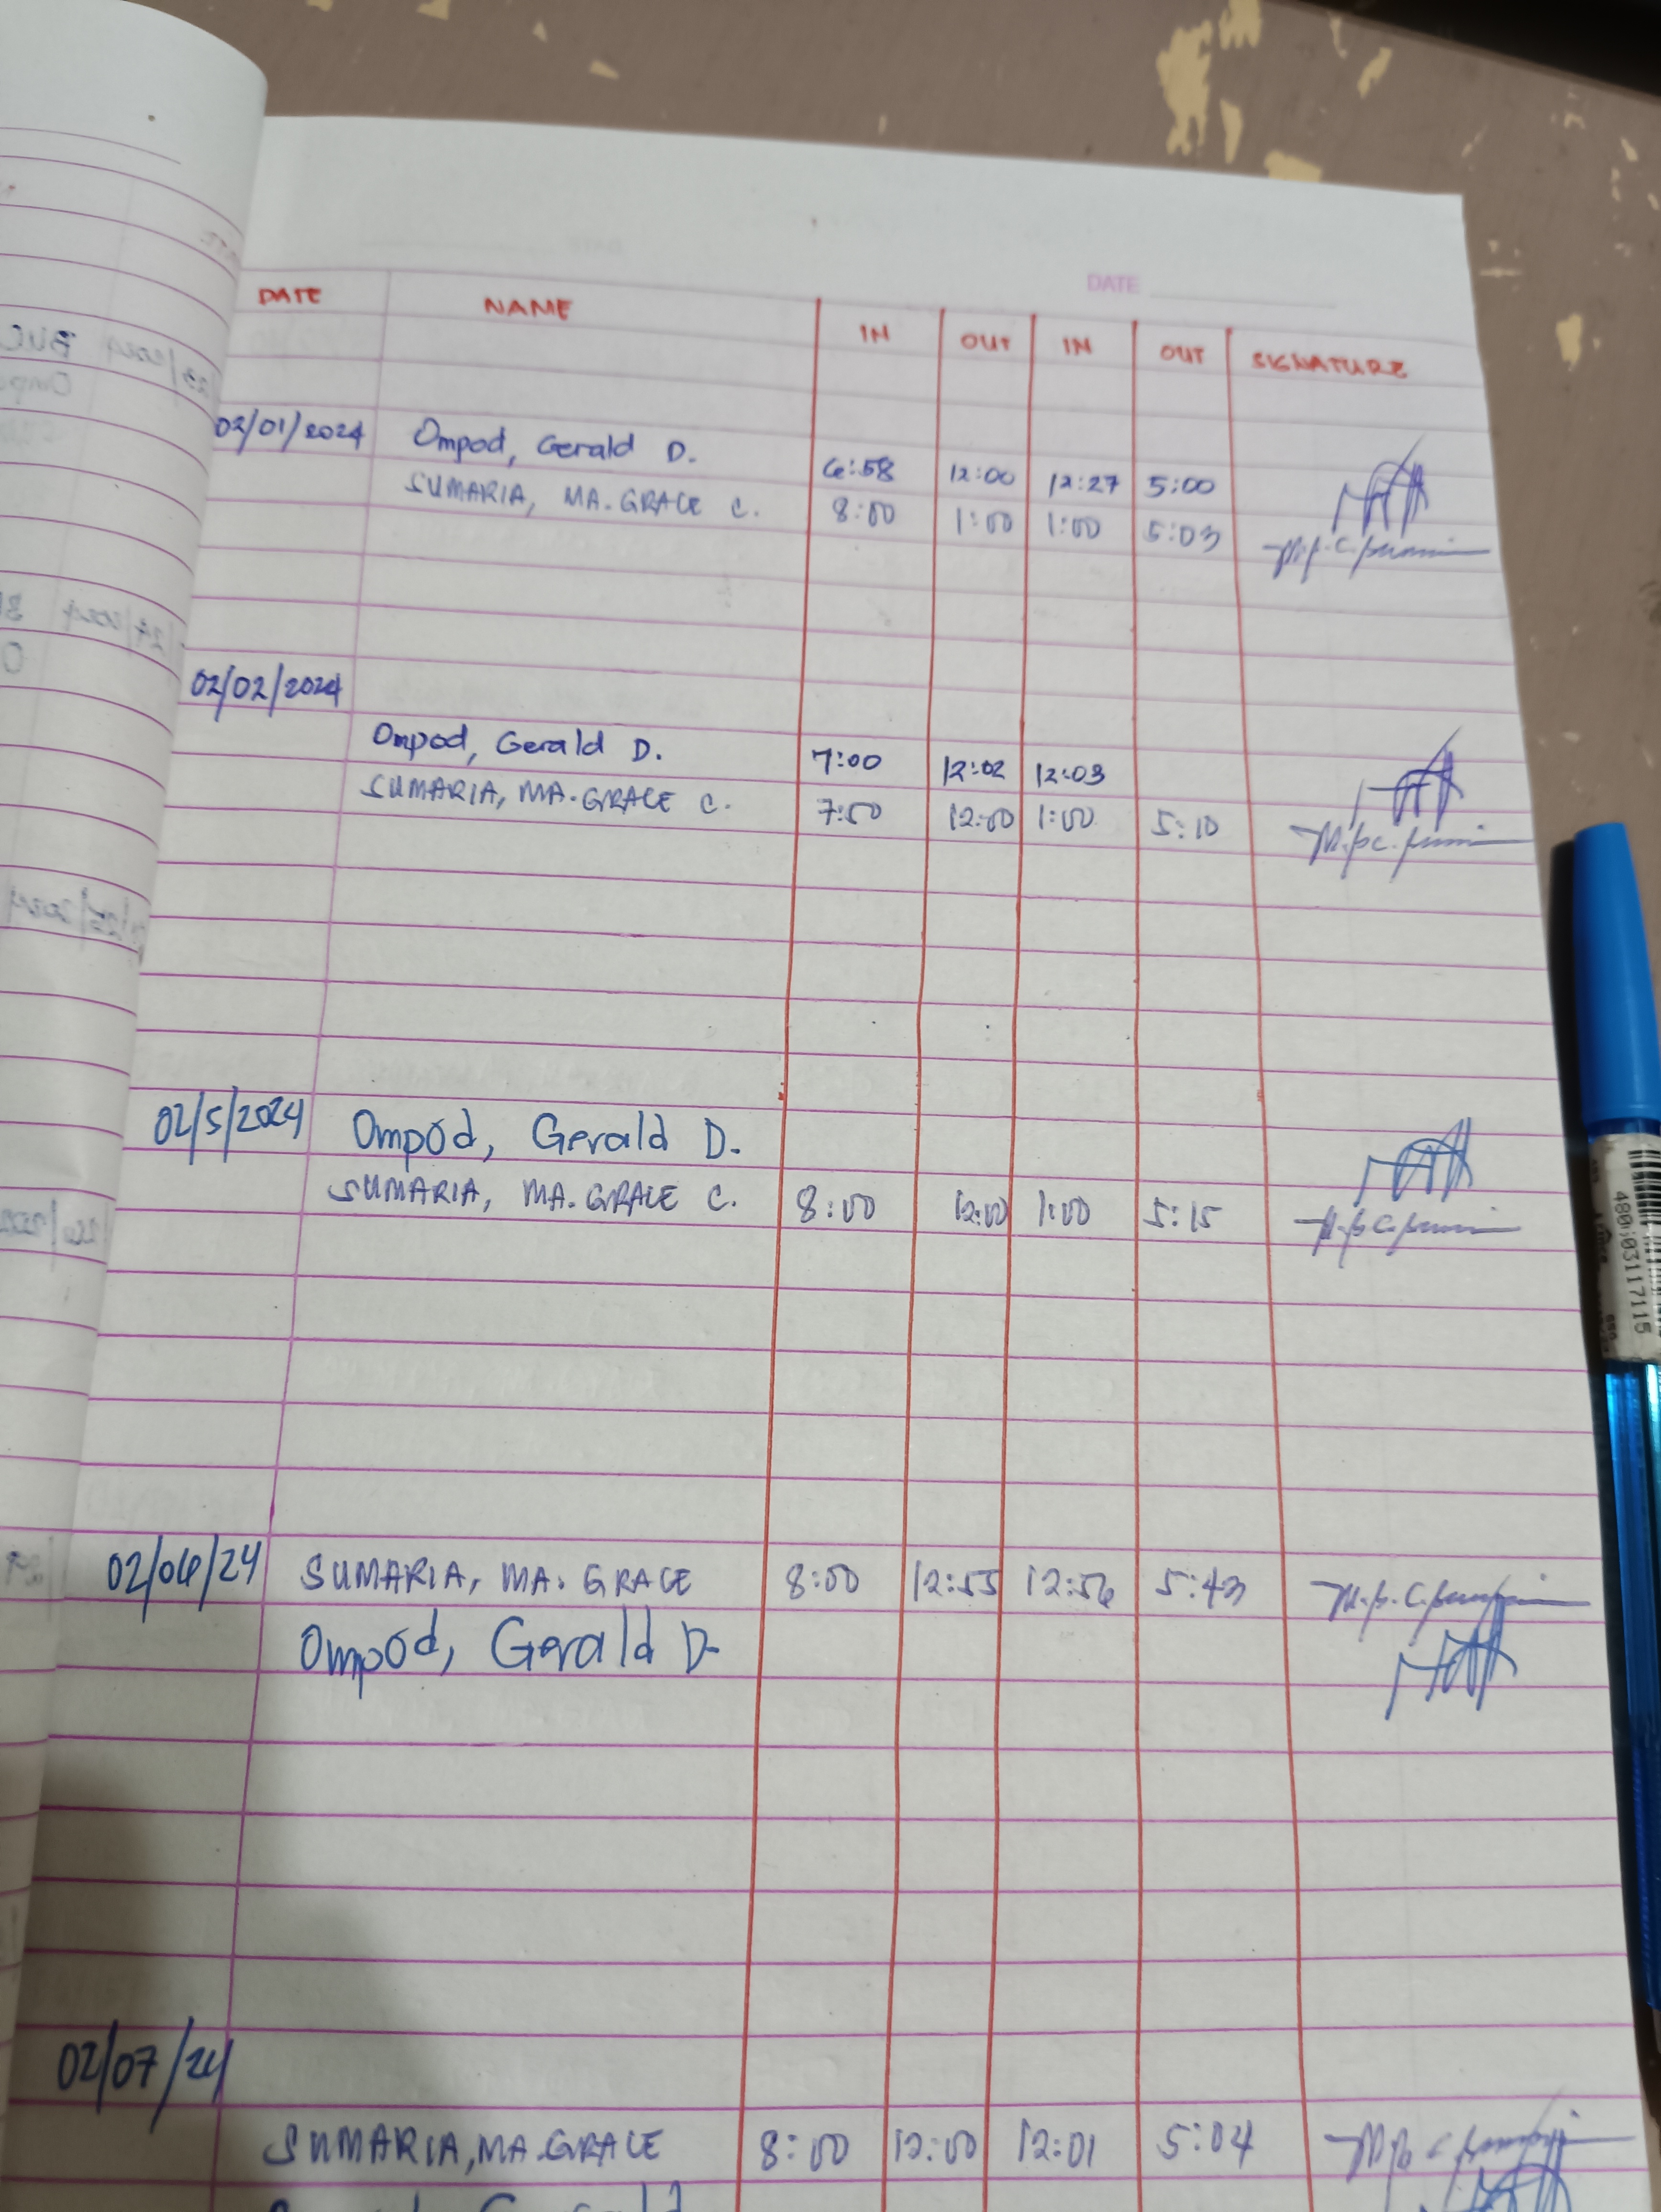 DATE
DATE NAME IN OUT IN OUT SIGNATURE
02/01/2024 Ompod, Gerald D. 6:58 12:00 12:27 5:00
SUMARIA, MA. GRACE C. 8:00 1:00 1:00 5:03
02/02/2024
Ompod, Gerald D. 7:00 12:02 12:03
SUMARIA, MA. GRACE C. 7:50 12:00 1:00 5:10
02/5/2024 Ompod, Gerald D.
SUMARIA, MA. GRACE C. 8:00 12:00 1:00 5:15
02/06/24 SUMARIA, MA. GRACE 8:00 12:55 12:56 5:43
Ompod, Gerald D.
02/07/24
SUMARIA, MA. GRACE 8:00 12:00 12:01 5:04